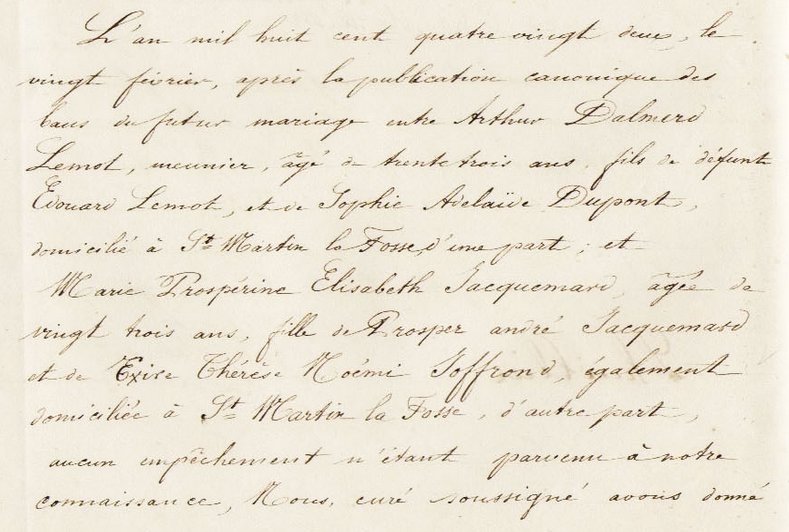 L'an mil huit cent quatre vingt deux, le
vingt février, après la publication canonique des
bans du futur mariage entre Arthur Dalmerd
Lemot, meunier, âgé de trente trois ans, fils de défunt
Edouard Lemot, et de Sophie Adelaïde Dupont,
domicilié à St Martin la Fosse, d'une part ; et
Marie Prospérine Elisabeth Jacquemard, âgée de
vingt trois ans, fille de Prosper andré Jacquemard
et de Thérèse Noémi Joffrond, également
domiciliée à St Martin la Fosse, d'autre part,
aucun empêchement n'étant parvenu à notre
connaissance, Nous, curé soussigné avons donné